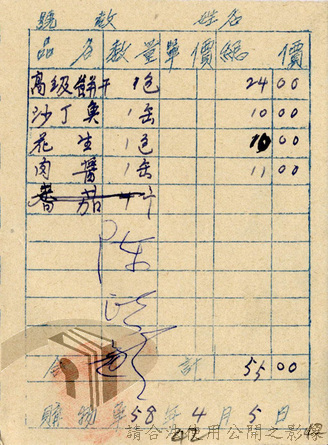 號數 姓名
品名 數量 單價 總價
高級餅干 1包 24 00
沙丁魚 1缶 10 00
花生 1包 10 00
肉醬 1缶 11 00
番茄 1個
合計 55 00
購物單 58年4月5日
請合法使用公開之影像